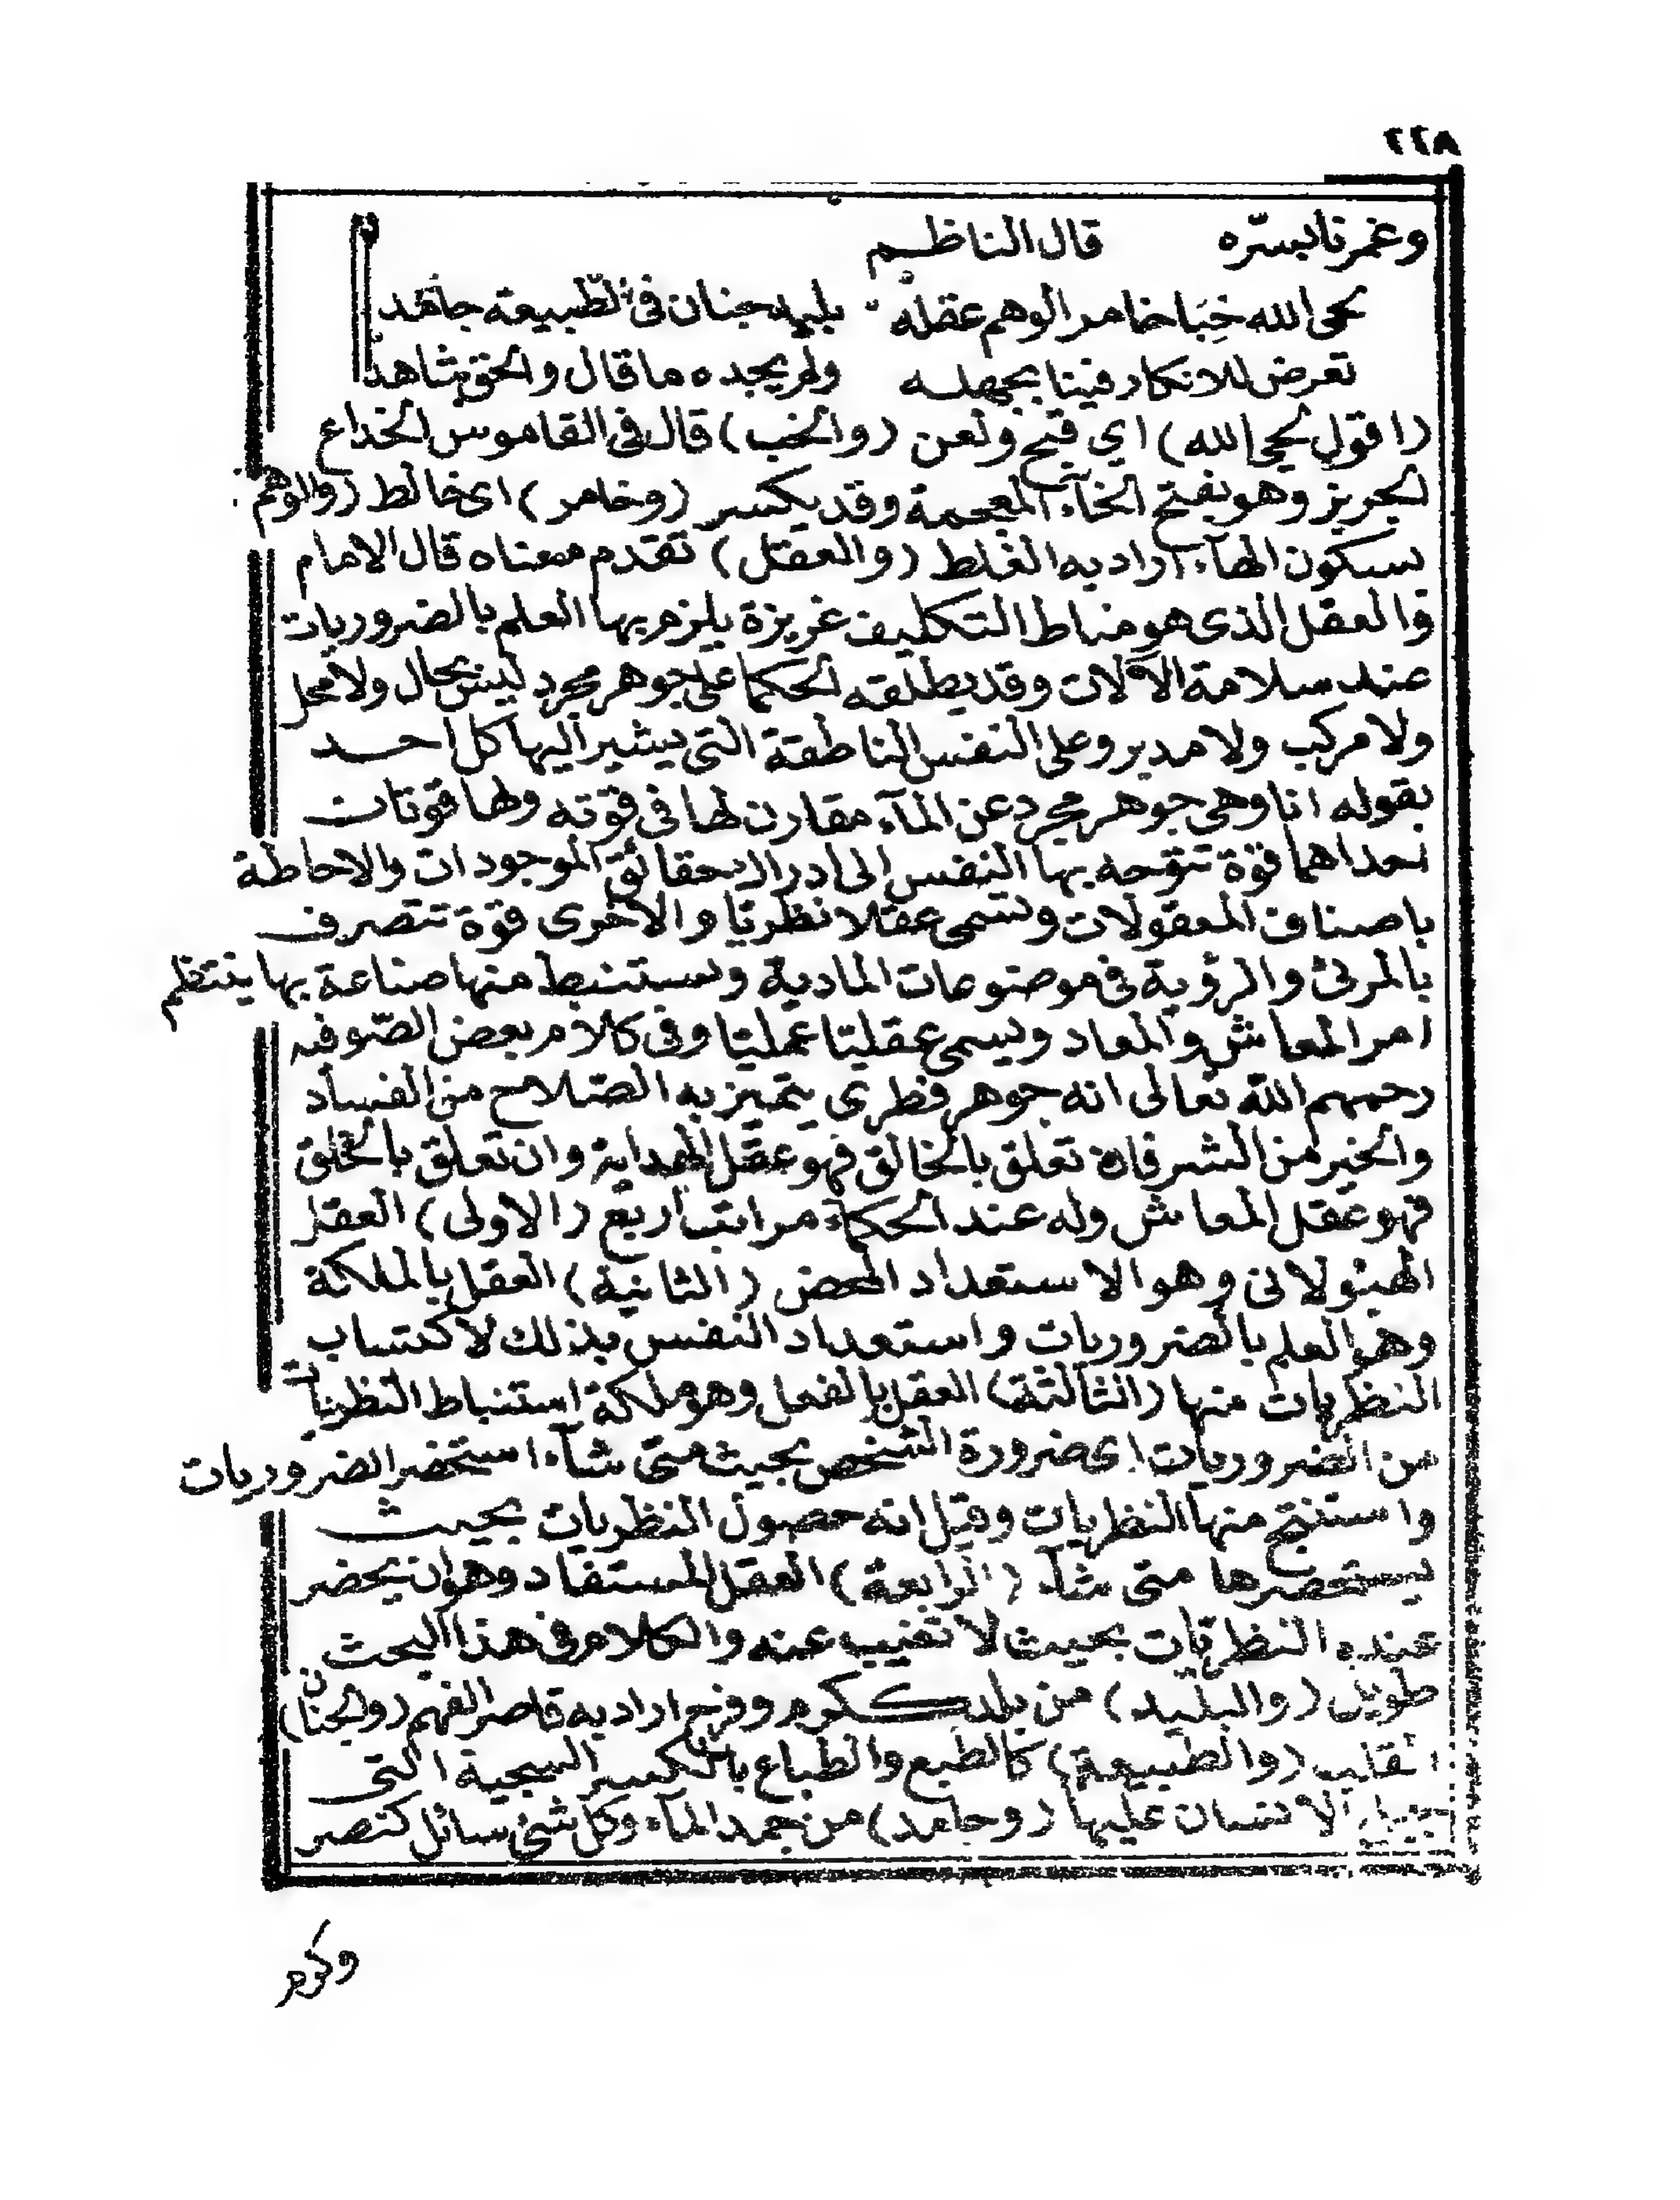 ٢٢٨
وغمرنا بسرّه قال الناظم
لحى الله خِبَا خامر الوهم عقله بليد جنان فى الطّبيعة جامد
تعرض للانكار فينا بجهله ولم يجده ما قال والحق شاهد
(اقول لحى الله) اي قبح ولعن (والخب) قال فى القاموس الخداع
الجربز وهو بفتح الخآء المعجمة وقد يكسر (وخامر) اى خالط (والوهم)
بسكون الهآء اراد به الغلط (والعقل) تقدم معناه قال الامام
والعقل الذى هو مناط التكليف غريزة يلزم بها العلم بالضروريات
عند سلامة الآلات وقد يطلقه الحكما على جوهر مجرد ليس بحال ولا محل
ولا مركب ولا مدبر وعلى النفس الناطقة التى يشير اليها كل احد
بقوله انا وهى جوهر مجرد عن المآء مقارن لها فى قوته ولها قوتان
احداهما قوّة تتوجه بها النفس الى ادراك حقائق الموجودات والاحاطة
باصناف المعقولات وتسمى عقلا نظريا والاخرى قوّة تتصرف
بالمرئ والرؤية فى موضوعات المادية وتستنبط منها صناعة بها ينتظم
امر المعاش والمعاد ويسمى عقليا عمليا وفى كلام بعض الصّوفيه
رحمهم الله تعالى انه جوهر فطرى يتميز به الصّلاح من الفساد
والخير من الشر فان تعلق بالخالق فهو عقل الهداية وان تعلق بالخلق
فهو عقل المعاش وله عند الحكمآء مراتب اربع (الاولى) العقل
الهيئولانى وهو الاستعداد المحض (الثانية) العقل بالملكة
وهو العلم بالضروريات واستعداد النفس بذلك لاكتساب
النظريات منها (الثالثة) العقل بالفعل وهو ملكة استنباط النظريات
من الضروريات اى ضرورة الشخص بحيث متى شآء استخضر الضروريات
واستنتج منها النظريات وقيل انه حصول النظريات بحيث
يستحضرها متى شآء (الرابعة) العقل المستفاد وهو ان يحضر
عنده النظريات بحيث لا تغيب عنه والكلام فى هذا البحث
طويل (والبليد) من بلد ككرم وفرح اراد به قاصر الفهم (والجنان)
القلب (والطبيعة) كالطبع والطباع بالكسر السجية التى
جبل الانسان عليها (وجامد) من جمد المآء وكل شئ سائل كنصر
وكرم